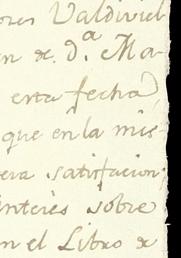 ores Valdiviel
n de d.ª Ma-
esta fecha
que en la mis-
era satisfacion;
interes sobre
n el Libro de